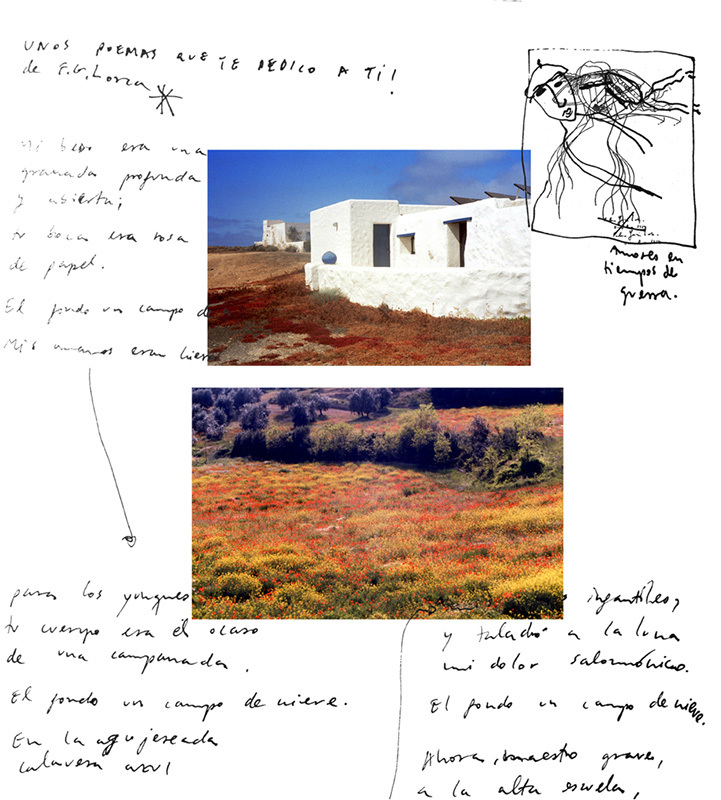 UNOS POEMAS QUE TE DEDICO A TI!
de F.G. Lorca
Mi beso era una
granada profunda
y abierta;
tu boca era rosa
de papel.
El fondo un campo d
Mis manos eran hier
Amores en
tiempos de
guerra.
para los yunques
tu cuerpo era el ocaso
de una campanada.
El fondo un campo de nieve.
En la agujereada
calavera azul
infantiles,
y taladró a la luna
mi dolor salomónico.
El fondo un campo de nieve.
Ahora, maestro grave,
a la alta escuela,